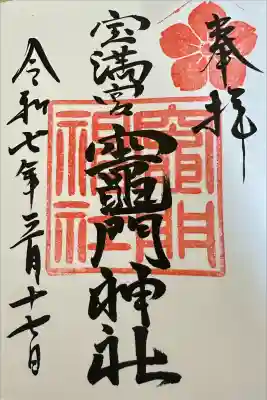 奉拝
宝満宮
竈門神社
令和七年三月十七日